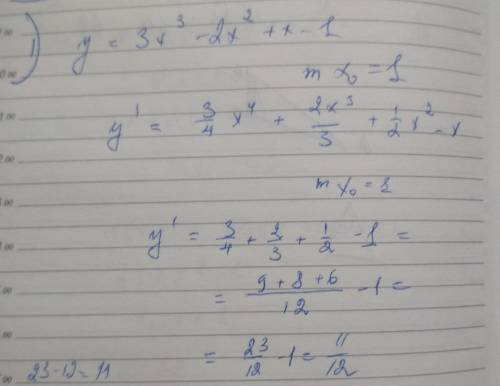 1) y = 3x³ - 2x² + x - 1
m x₀ = 1
y' = 3/4 x⁴ + 2x³/3 + 1/2 x² - x
m x₀ = 1
y' = 3/4 + 2/3 + 1/2 - 1 =
= (9 + 8 + 6)/12 - 1 =
= 23/12 - 1 = 11/12
23 - 12 = 11